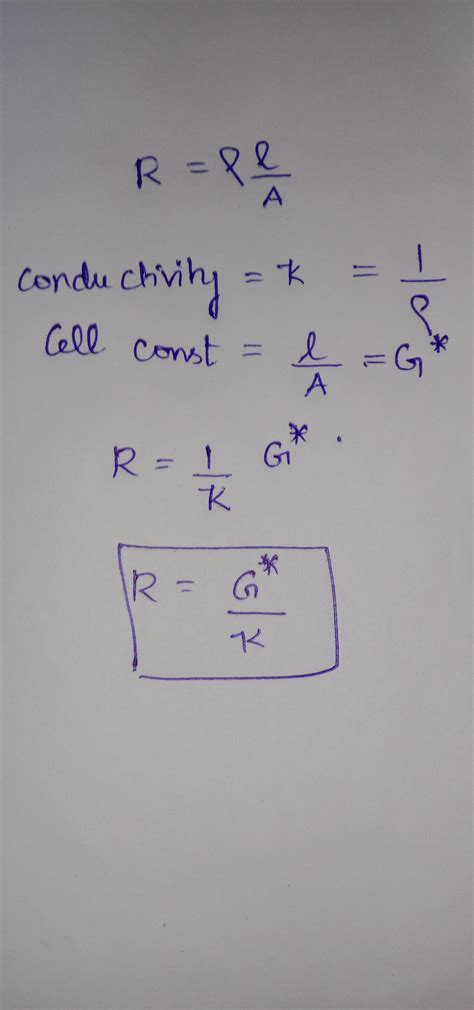 R = ρ l/A
conductivity = κ = 1/ρ
Cell const = l/A = G*
R = 1/κ G* .
R = G*/κ